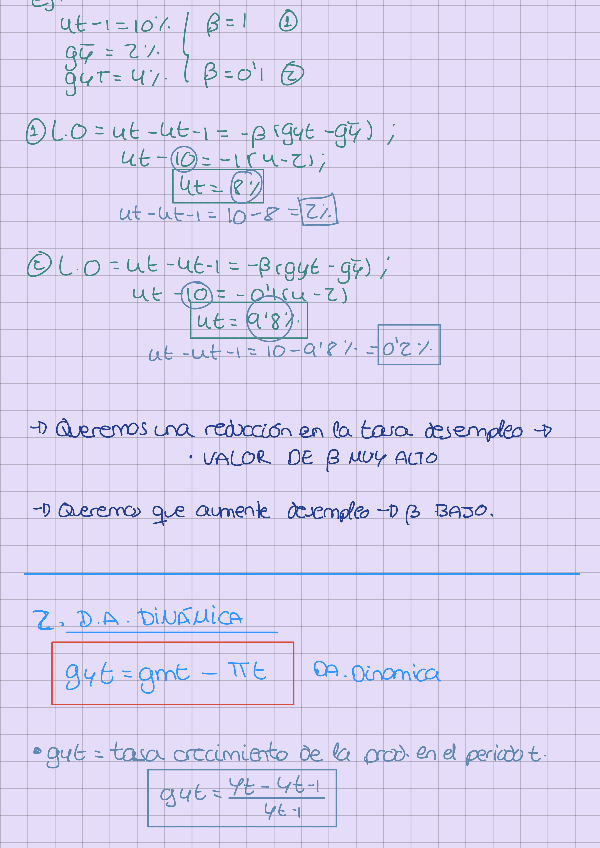 Ej:
ut-1 = 10% β = 1 ①
gȳ = 2%
gyt = 4% β = 0'1 ②
① L.O = ut - ut-1 = -β (gyt - gȳ) ;
ut - 10 = -1 (4 - 2) ;
ut = 8%
ut - ut-1 = 10 - 8 = 2%
② L.O = ut - ut-1 = -β (gyt - gȳ) ;
ut - 10 = -0'1 (4 - 2)
ut = 9'8%
ut - ut-1 = 10 - 9'8% = 0'2%
→ Queremos una reducción en la tasa desempleo →
· VALOR DE β MUY ALTO
→ Queremos que aumente desempleo → β BAJO.
2. D.A. DINÁMICA
gyt = gmt - πt DA. Dinamica
• gyt = tasa crecimiento de la prod. en el periodo t.
gyt = yt - yt-1 / yt-1